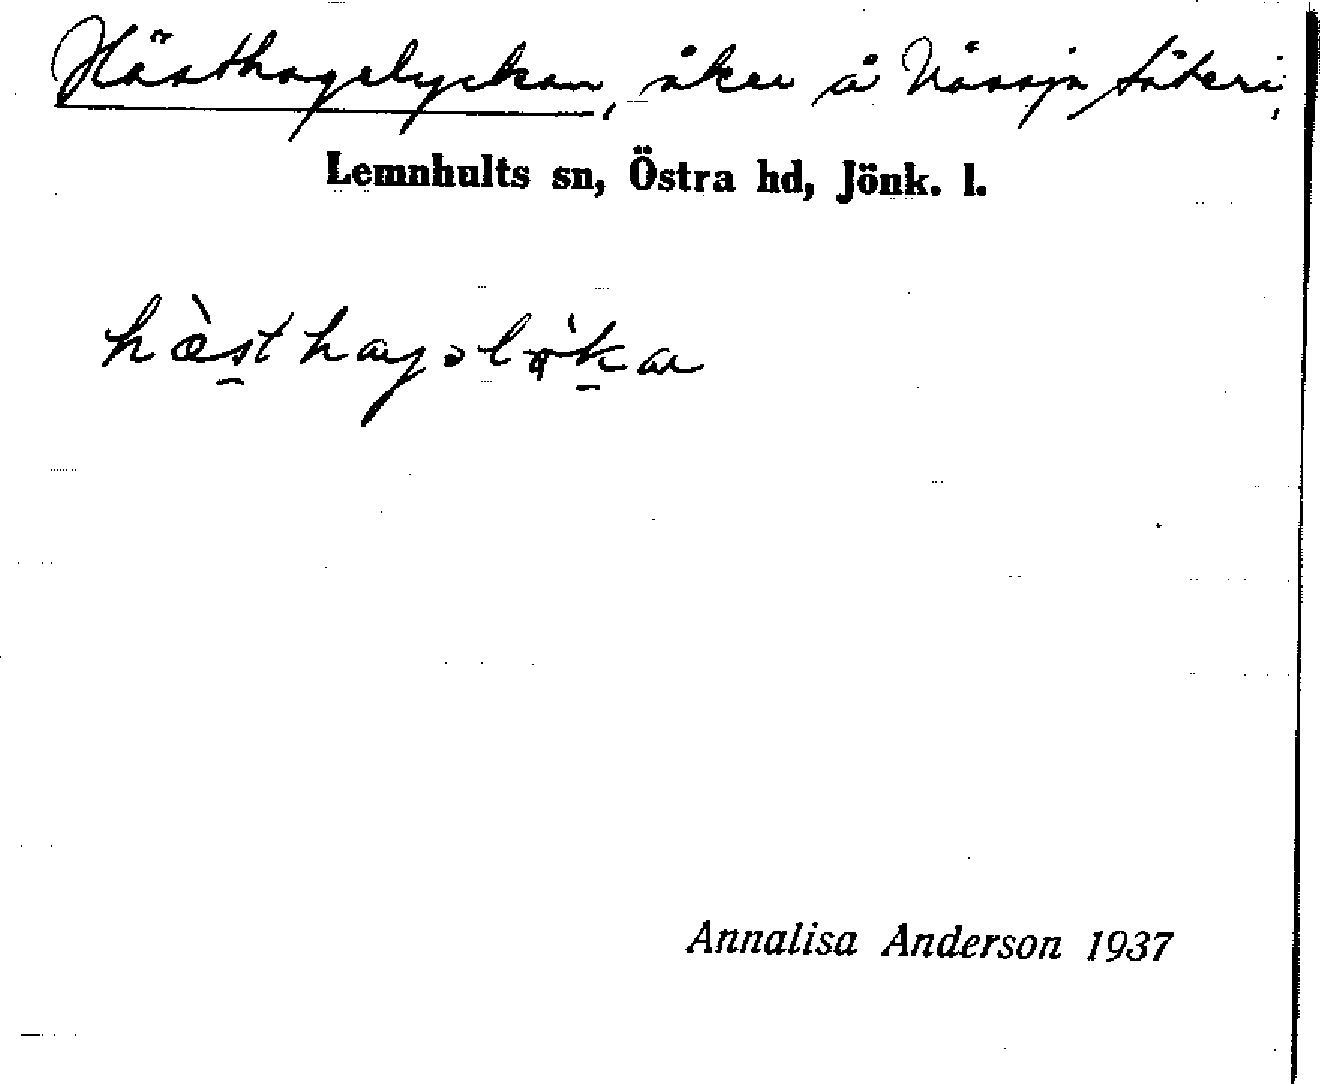 Hästhagelyckan, åker å Nässja säteri,
Lemnhults sn, Östra hd, Jönk. l.
Annalisa Anderson 1937